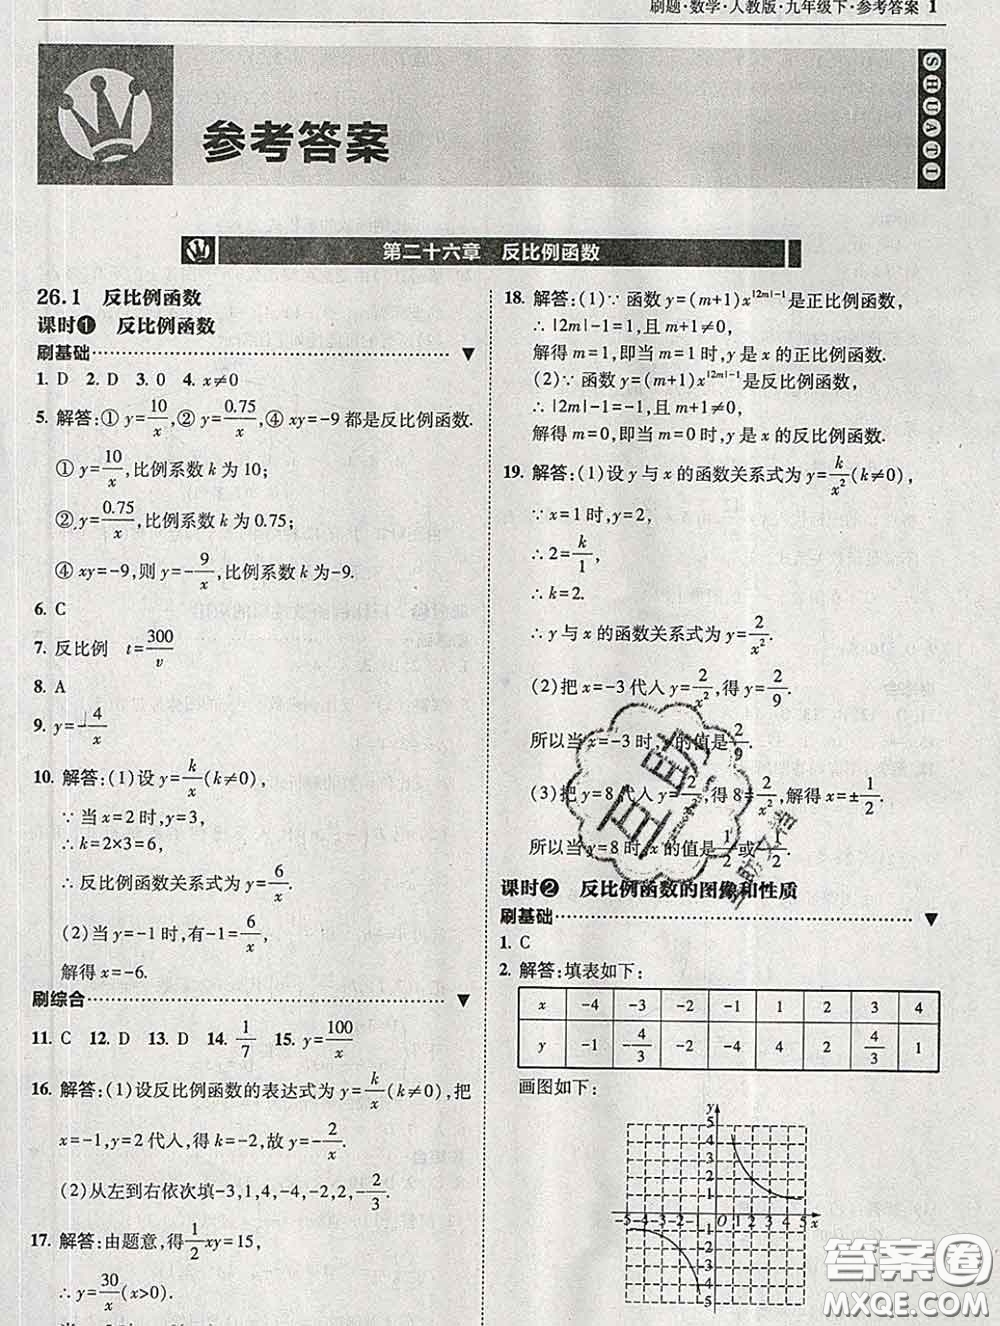 刷题·数学·人教版·九年级下·参考答案 1
SHUATI
参考答案
第二十六章 反比例函数
26.1 反比例函数
课时❶ 反比例函数
刷基础
1. D 2. D 3. 0 4. x≠0
5. 解答:① y=10/x,② y=0.75/x,④ xy=-9 都是反比例函数.
① y=10/x,比例系数 k 为 10;
② y=0.75/x,比例系数 k 为 0.75;
④ xy=-9,则 y=-9/x,比例系数 k 为-9.
6. C
7. 反比例 t=300/v
8. A
9. y=-4/x
10. 解答:(1)设 y=k/x(k≠0),
∵ 当 x=2 时,y=3,
∴ k=2×3=6,
∴ 反比例函数关系式为 y=6/x.
(2)当 y=-1 时,有-1=6/x,
解得 x=-6.
刷综合
11. C 12. D 13. D 14. 1/7 15. y=100/x
16. 解答:(1)设反比例函数的表达式为 y=k/x(k≠0),把
x=-1,y=2 代人,得 k=-2,故 y=-2/x.
(2)从左到右依次填-3,1,4,-4,-2,2,-2/3.
17. 解答:由题意,得1/2xy=15,
∴ y=30/x(x>0).
18. 解答:(1)∵ 函数 y=(m+1)x^|2m|-1是正比例函数,
∴ |2m|-1=1,且 m+1≠0,
解得 m=1,即当 m=1 时,y 是 x 的正比例函数.
(2)∵ 函数 y=(m+1)x^|2m|-1是反比例函数,
∴ |2m|-1=-1,且 m+1≠0,
解得 m=0,即当 m=0 时,y 是 x 的反比例函数.
19. 解答:(1)设 y 与 x 的函数关系式为 y=k/x²(k≠0),
∵ x=1 时,y=2,
∴ 2=k/1,
∴ k=2.
∴ y 与 x 的函数关系式为 y=2/x².
(2)把 x=-3 代人 y=2/x²,得 y=2/9.
所以当 x=-3 时,y的值是2/9.
(3)把 y=8 代人 y=2/x²,得 8=2/x²,解得 x=±1/2.
所以当 y=8 时,x 的值是1/2或-1/2.
互助
互助文档
课时❷ 反比例函数的图像和性质
刷基础
1. C
2. 解答:填表如下:
x -4 -3 -2 -1 1 2 3 4
y -1 -4/3 -2 -4 4 2 4/3 1
画图如下:
y
5
4
3
2
1
-5-4-3-2-1 O 1 2 3 4 5 x
1
2
3
4
5
答案圈
MXQE.COM